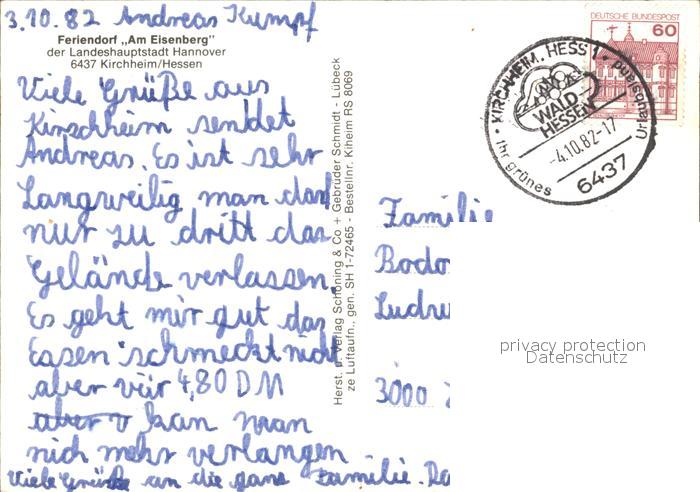 3.10.82 Andreas Kumpf
Feriendorf „Am Eisenberg"
der Landeshauptstadt Hannover
6437 Kirchheim/Hessen
Viele Grüße aus
Kirschheim sendet
Andreas. Es ist sehr
Langweilig man darf
nur zu dritt das
Gelände verlassen.
Es geht mir gut das
Essen schmeckt nicht
aber vür 4,80 DM
aber v kan man
nich mehr verlangen
Viele Grüße an die ganz Familie.
Herst. u. Verlag Schöning & Co + Gebrüder Schmidt - Lübeck
ze Luftaufn., gen. SH 1-72465 - Bestellnr. Kiheim RS 8069
DEUTSCHE BUNDESPOST
60
KIRCHHEIM, HESS 1
WALD
HESSEN
-4.10.82-17
6437
Ihr grünes
Familie
Bodo
3000
privacy protection
Datenschutz